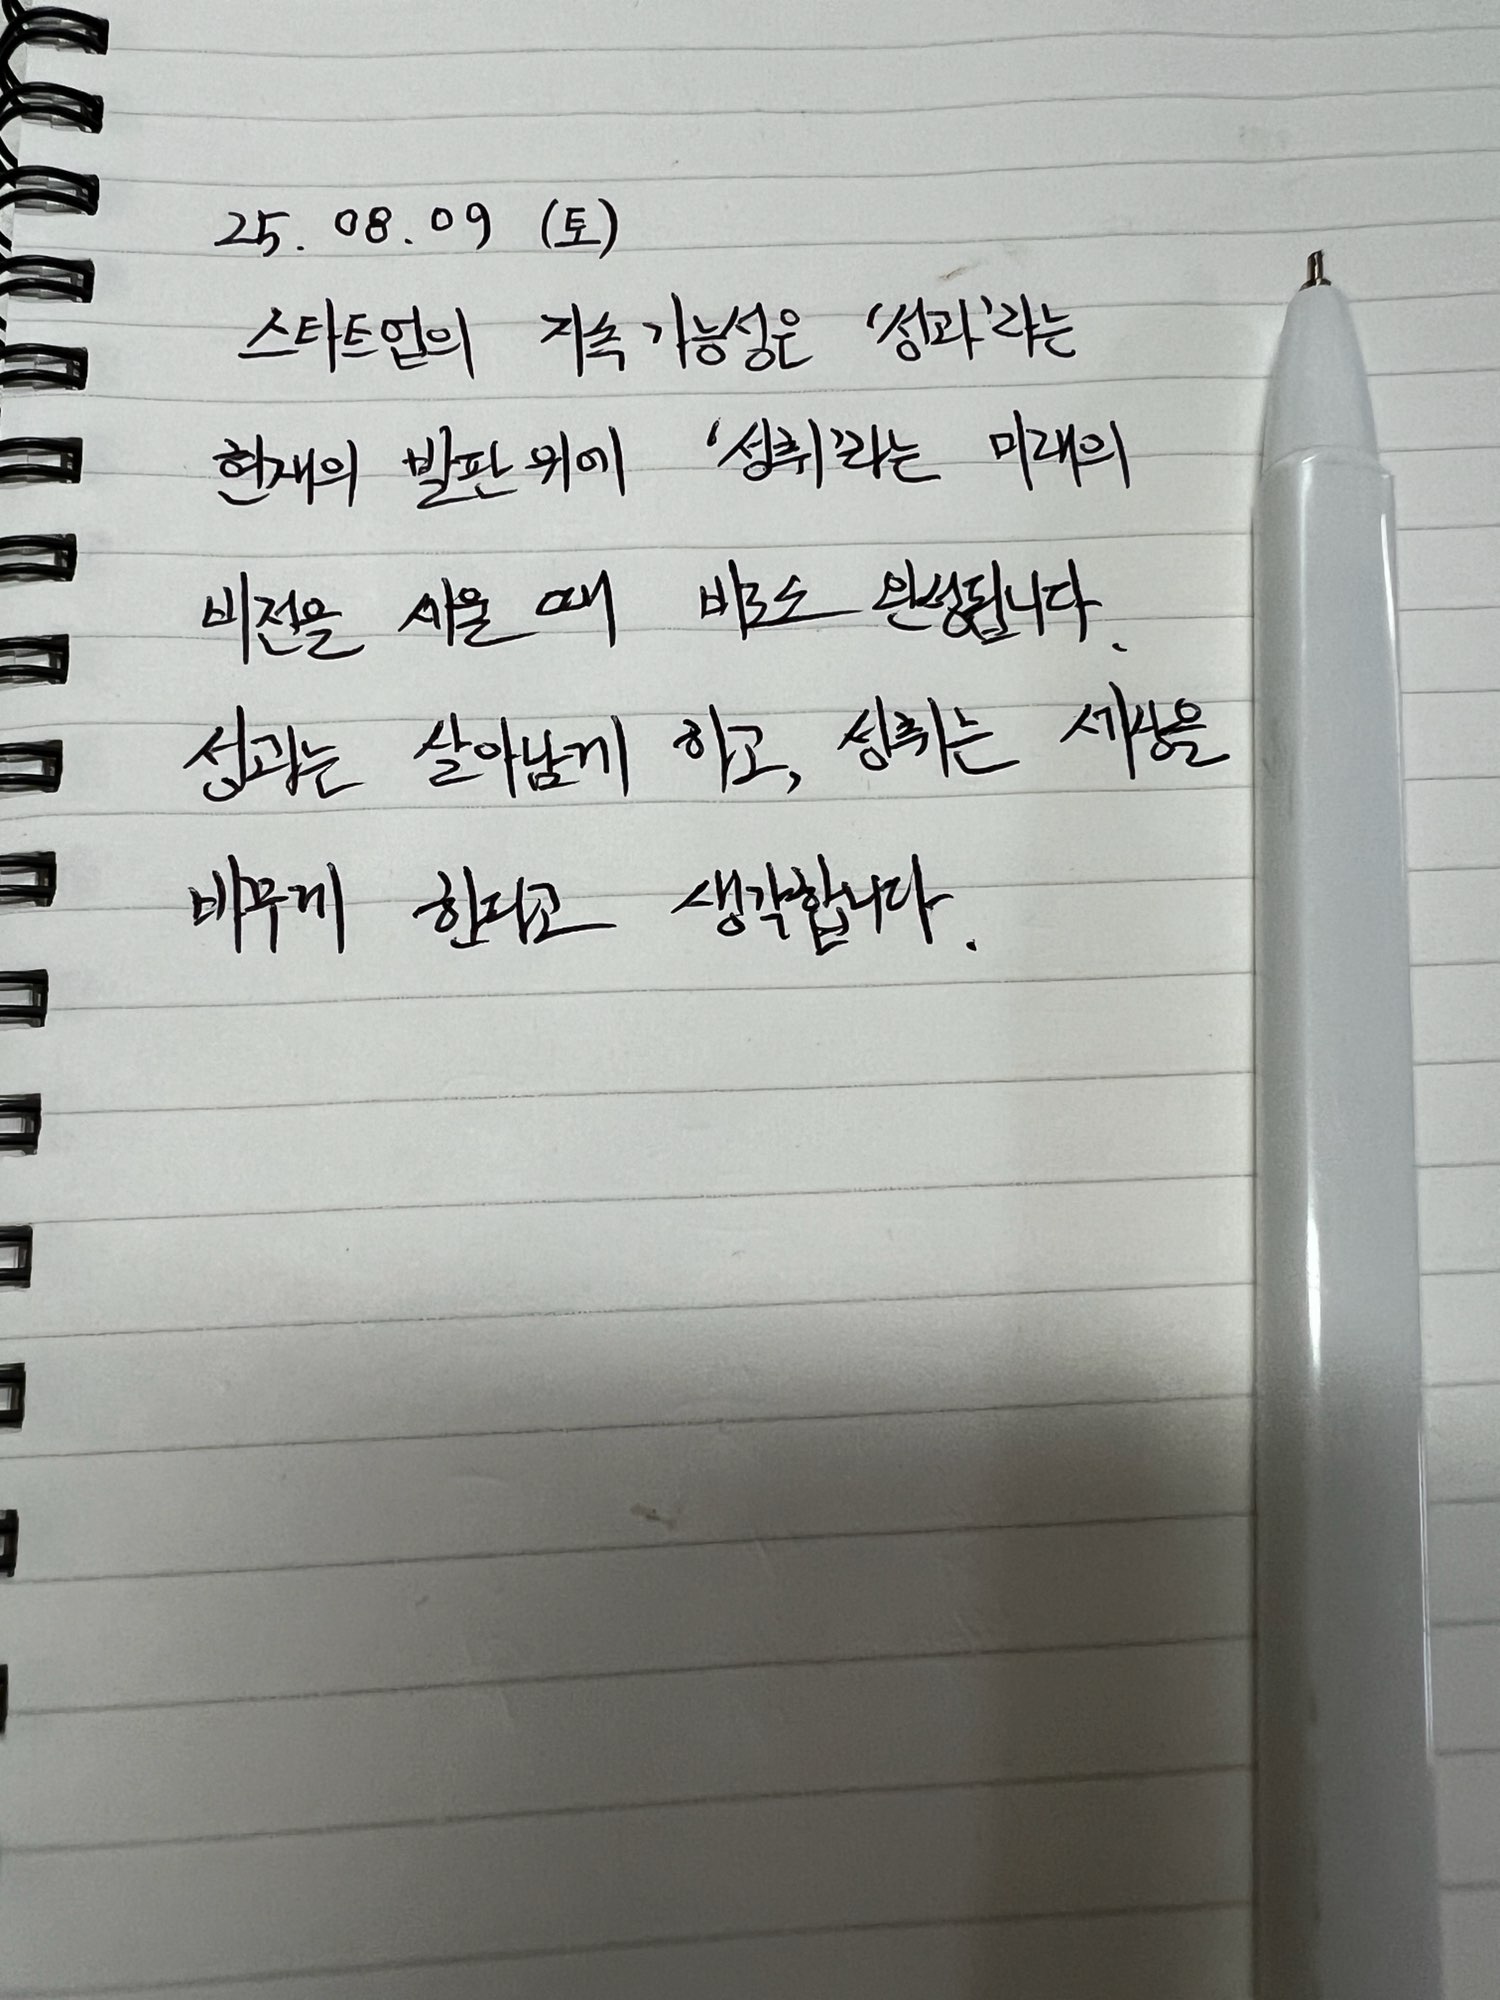 25. 08. 09 (토)
스타트업의 지속가능성은 '성과'라는
현재의 발판 위에 '성취'라는 미래의
비전을 세울 때 비로소 완성됩니다.
성과는 살아남게 하고, 성취는 세상을
바꾸게 한다고 생각합니다.